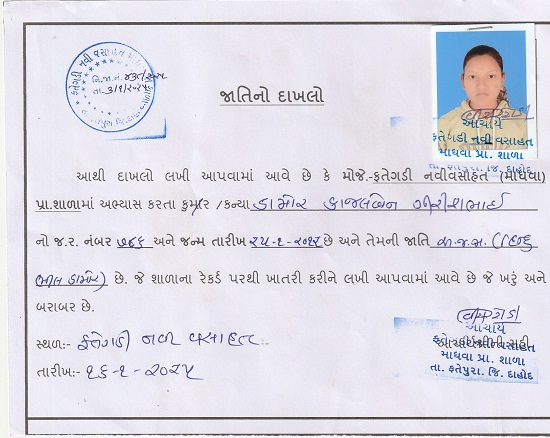 ફતેગડી નવી વસાહત
જાતિનો દાખલો
આચાર્ય
ફતેગડી નવી વસાહત
માધવા પ્રા. શાળા
તા. ફતેપુરા. જિ. દાહોદ
આથી દાખલો લખી આપવામાં આવે છે કે મોજે.-ફતેગડી નવીવસાહત (માધવા)
પ્રા.શાળામાં અભ્યાસ કરતા કુમાર /કન્યા ડામોર કાજલબેન ગીરીશભાઈ
નો જ.ર. નંબર ૭૪૬ અને જન્મ તારીખ છે અને તેમની જાતિ અ.જ.જા. (હિન્દુ
ભીલ ડામોર) છે. જે શાળાના રેકર્ડ પરથી ખાતરી કરીને લખી આપવામાં આવે છે જે ખરું અને
બરાબર છે.
સ્થળ:- ફતેગડી નવી વસાહત
તારીખ:- ૧૬-૧-૨૦૨૫
આચાર્ય
માધવા પ્રા. શાળા
તા. ફતેપુરા. જિ. દાહોદ